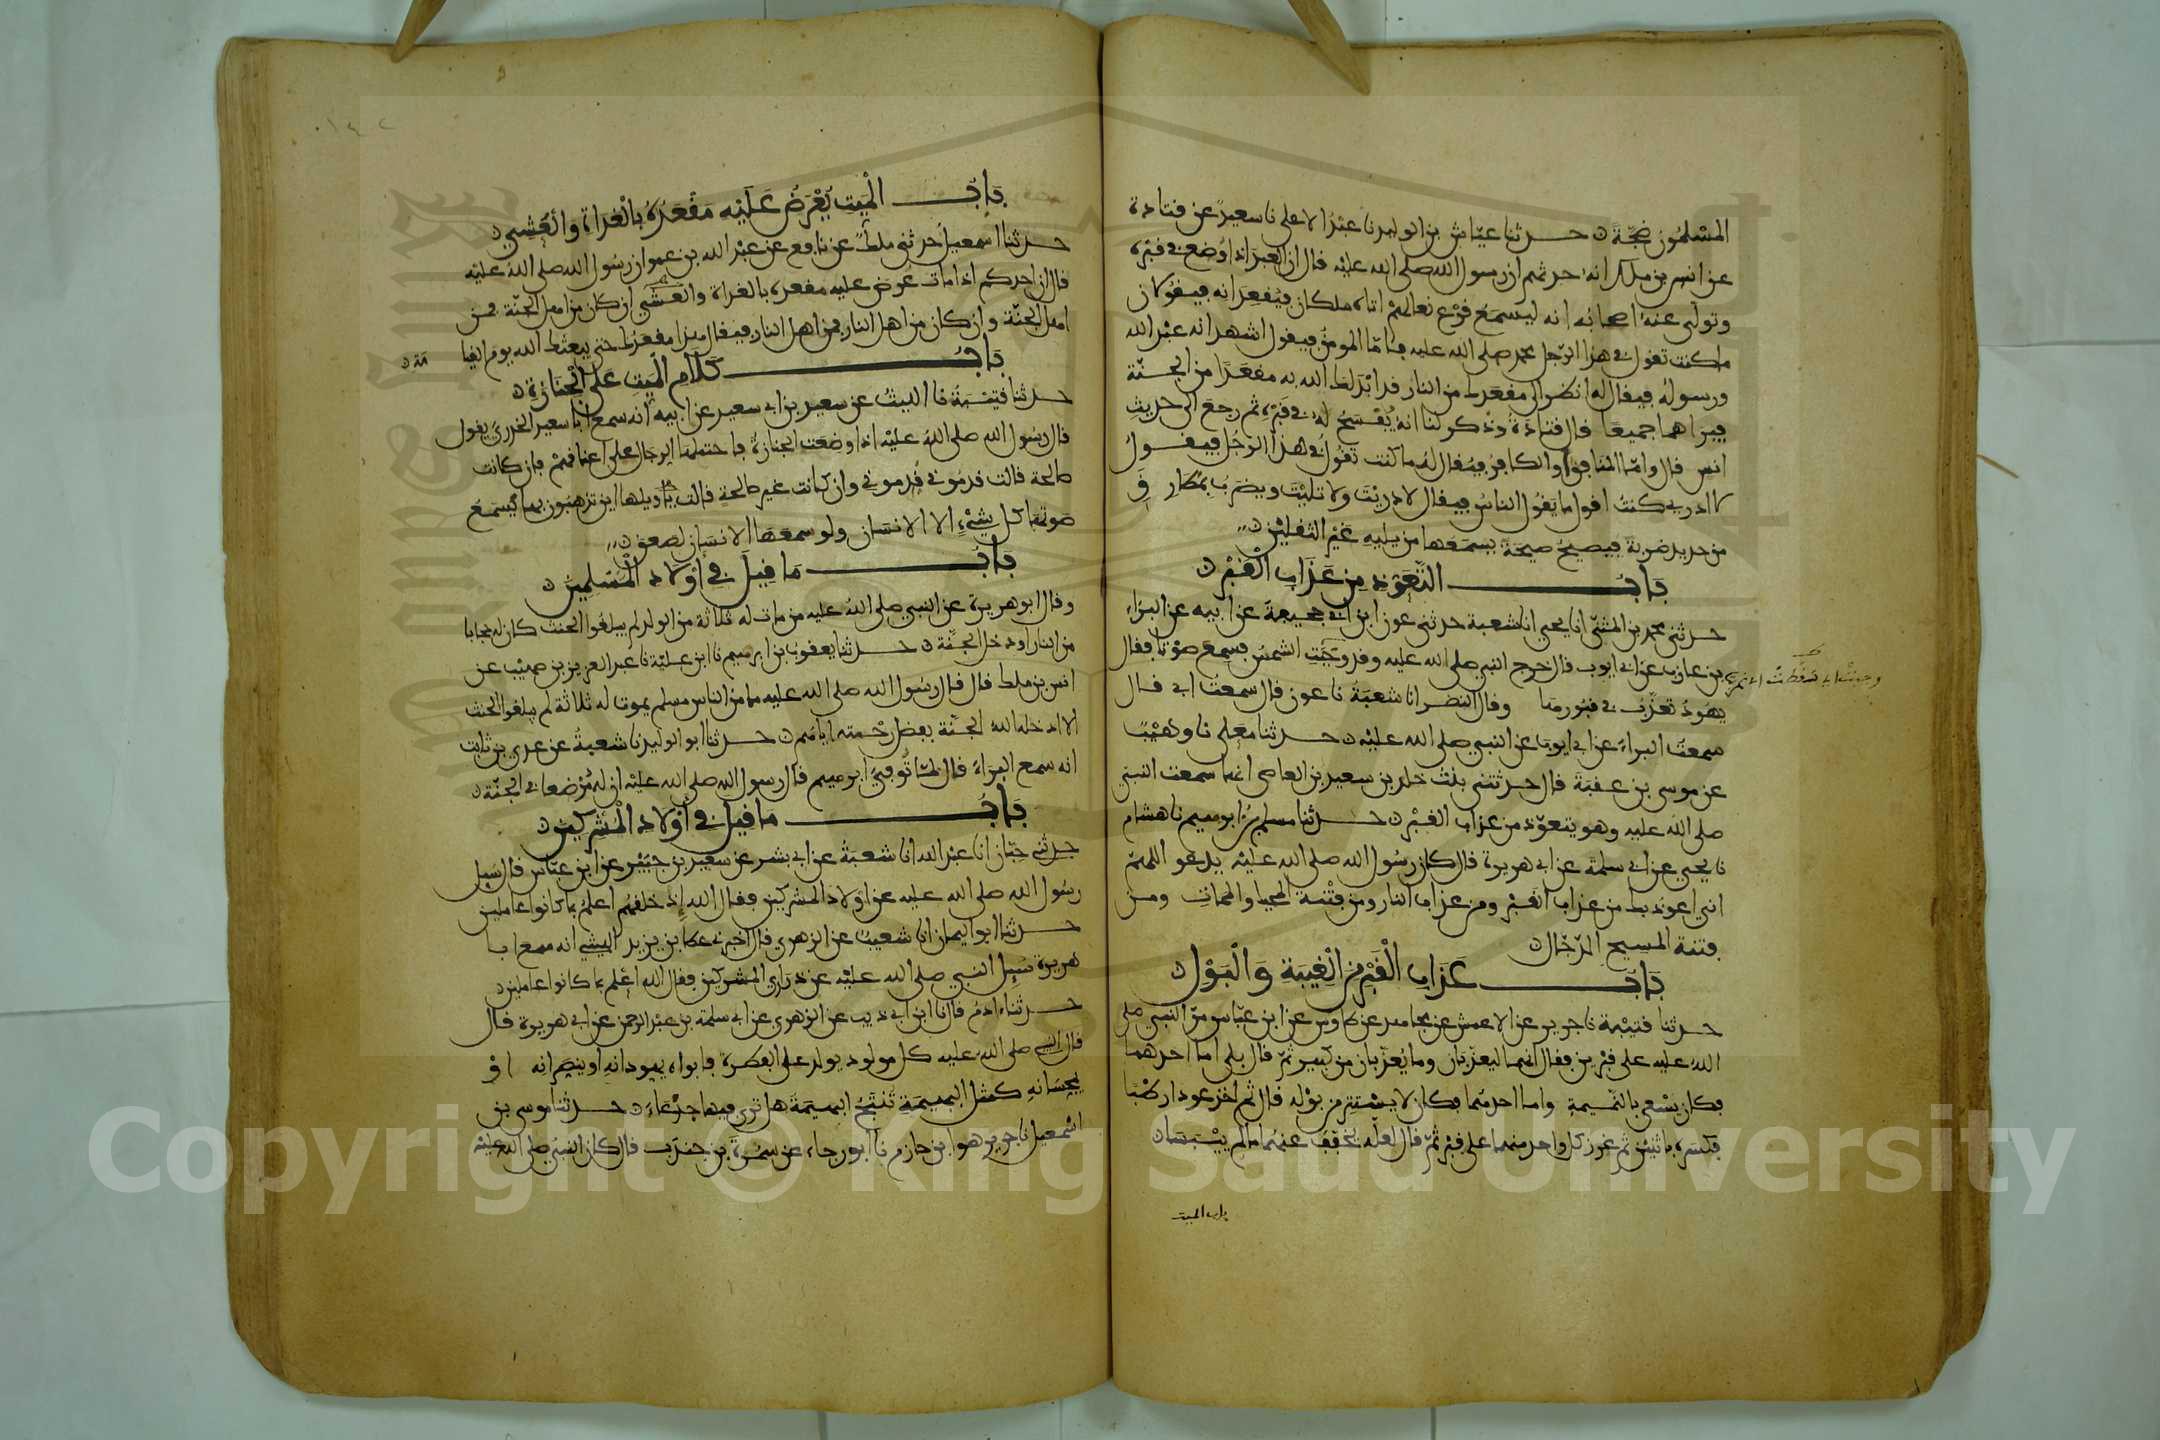 المسلمون ضجّة ن حدثنا عيّاش بن الوليد نا عبد الاعلى نا سعيد عن قتادة
عن انس بن ملك انه حدثهم ان رسول الله صلى الله عليه قال ان العبد اذا وُضع في قبره
وتولى عنه اصحابه انه ليسمع قرع نعالهم اتاه ملكان فيُقعدانه فيقولان
ما كنت تقول في هذا الرّجل محمد صلى الله عليه فامّا المومن فيقول اشهد انه عبد الله
ورسوله فيقال له انظر الى مقعدك من النار قد ابدلك الله به مقعدًا من الجنّة
فيراهما جميعا قال قتادة وذُكر لنا انه يُفسح له في قبره ثم رجع الى حديث
انس قال وامّا المنافق والكافر فيُقال له ما كنت تقول في هذا الرّجل فيقول
لا ادري كنت اقول ما يقول الناس فيقال لا دريت ولا تليت ويضرب بمطارق
من حديد ضربة فيصيح صيحة يسمعها من يليه غير الثقلين ن
بابُ التّعوّذ من عذاب القبر ن
حدثني محمد بن المثنّى انا يحيى انا شعبة حدثني عون ابن ابي جحيفة عن ابيه عن البراء
بن عازب عن ابي ايوب قال خرج النبي صلى الله عليه وقد وجبت الشمس فسمع صوتًا فقال
يهود تعذّب في قبورها وقال النضر انا شعبة نا عون قال سمعت ابي قال
سمعت البراء عن ابي ايوب عن النبي صلى الله عليه ن حدثنا معلى نا وهيب
عن موسى بن عقبة قال حدثتني بنت خلد بن سعيد بن العاصي انها سمعت النبي
صلى الله عليه وهو يتعوّذ من عذاب القبر ن حدثنا مسلم بن ابرهيم نا هشام
نا يحيى عن ابي سلمة عن ابي هريرة قال كان رسول الله صلى الله عليه يدعو اللهمّ
اني اعوذ بك من عذاب القبر ومن عذاب النار ومن فتنة المحيا والممات ومن
فتنة المسيح الدّجّال ن
بابُ عذاب القبر من الغيبة والبول ن
حدثنا قتيبة نا جرير عن الاعمش عن مجاهد عن طاوس عن ابن عبّاس مرّ النبي صلى
الله عليه على قبرين فقال انهما ليعذّبان وما يُعذّبان من كبير ثمّ قال بلى اما احدهما
فكان يسعى بالنّميمة واما احدهما فكان لا يستتر من بوله قال ثم اخذ عودا رطبًا
فكسره باثنين ثم غرز كل واحد منهما على قبر ثمّ قال لعلّه يخفّف عنهما ما لم ييبسا ن
باب الميت
بابُ الميّت يُعرض عليه مقعده بالغداة والعشي ن
حدثنا اسمعيل حدثني ملك عن نافع عن عبد الله بن عمر ان رسول الله صلى الله عليه
قال ان احدكم اذا مات عرض عليه مقعده بالغداة والعشي ان كان من اهل الجنّة فمن
اهل الجنّة وان كان من اهل النار فمن اهل النار فيقال هذا مقعدك حتى يبعثك الله يوم القيا مة ن
بابُ كلام الميت على الجنازة ن
حدثنا قتيبة نا الليث عن سعيد بن ابي سعيد عن ابيه انه سمع ابا سعيد الخدري يقول
قال رسول الله صلى الله عليه اذا وضعت الجنازة فاحتملها الرجال على اعناقهم فان كانت
صالحة قالت قدموني قدموني وان كانت غير صالحة قالت يا ويلها اين تذهبون بها يسمع
صوتها كل شيء الا الانسان ولو سمعها الانسان لصعق ن
بابُ ما قيل في أولاد المسلمين ن
وقال ابو هريرة عن النبي صلى الله عليه من مات له ثلاثة من الولد لم يبلغوا الحنث كان له حجابا
من النار او دخل الجنّة ن حدثنا يعقوب بن ابرهيم نا ابن عليّة نا عبد العزيز بن صهيب عن
انس بن ملك قال قال رسول الله صلى الله عليه ما من الناس مسلم يموت له ثلاثة لم يبلغوا الحنث
الا ادخله الله الجنّة بفضل رحمته اياهم ن حدثنا ابو الوليد نا شعبة عن عدي بن ثابت
انه سمع البراء قال لمّا تُوفّي ابرهيم قال رسول الله صلى الله عليه ان له مُرضعا في الجنّة ن
بابُ ما قيل في أولاد المشركين ن
حدثني حبّان انا عبد الله انا شعبة عن ابي بشر عن سعيد بن جبير عن ابن عبّاس قال سيل
رسول الله صلى الله عليه عن اولاد المشركين فقال الله إذ خلقهم اعلم بما كانوا عاملين
حدثنا ابو اليمان انا شعيب عن الزهري قال اخبرني عطا بن يزيد الليثي انه سمع ابا
هريرة سيل النبي صلى الله عليه عن ذراري المشركين فقال الله اعلم بما كانوا عاملين ن
حدثنا ادم قال نا ابن ابي ذيب عن الزهري عن ابي سلمة بن عبد الرحمن عن ابي هريرة قال
قال النبي صلى الله عليه كل مولود يولد على الفطرة فابواه يهودانه او ينصرانه او
يمجسانه كمثل البهيمة تنتج البهيمة هل ترى فيها جدعاء ن حدثنا موسى بن
اسمعيل نا جرير هو ابن حازم نا ابو رجاء عن سمرة بن جندب قال كان النبي صلى الله عليه
Copyright © King Saud University